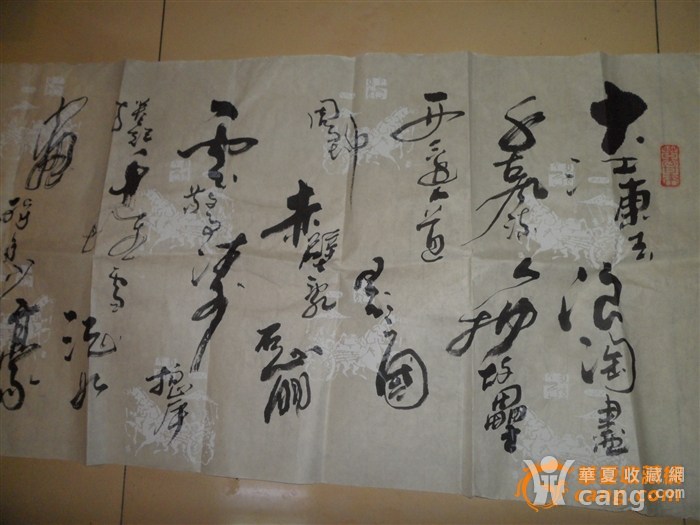 大江東去浪淘盡
千古風流人物故壘
西邊人道
三國
周郎
赤壁亂石崩
雲驚濤
掠岸
捲起千堆雪
畫
一時多少豪
華夏收藏網
cang.com